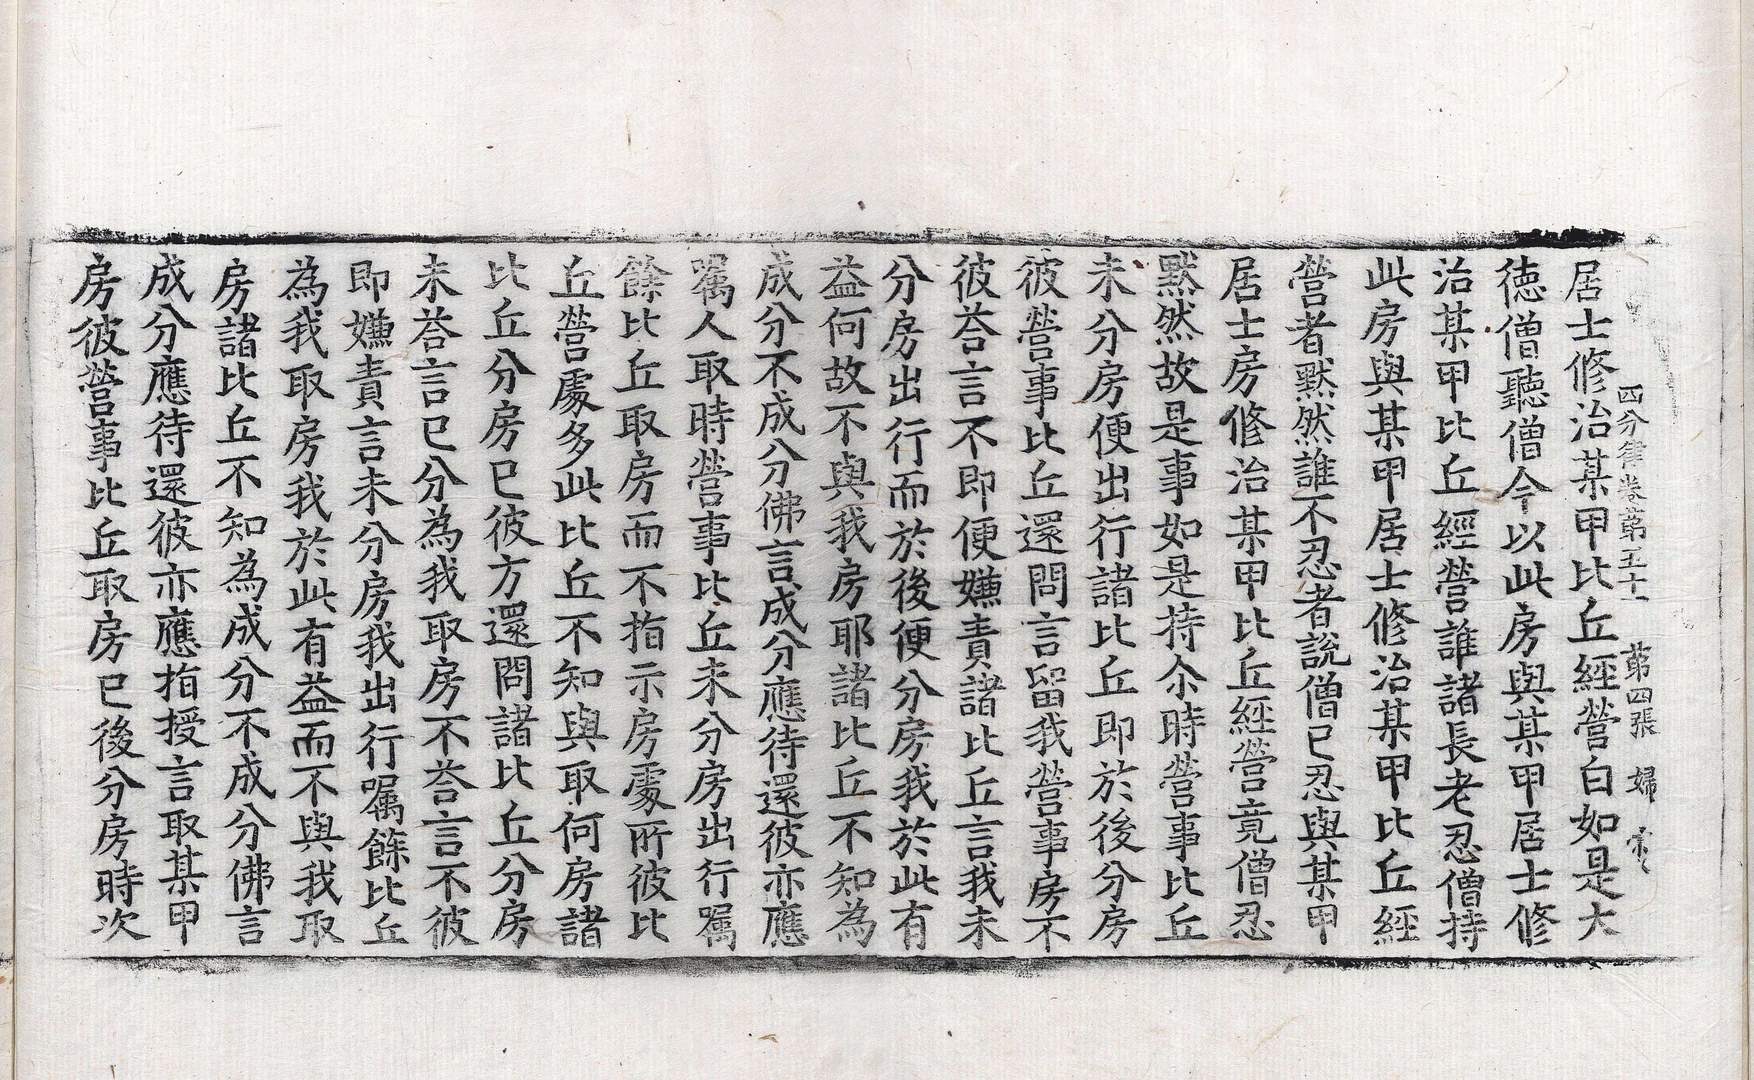 四分律卷第五十一　第四張　婦
居士修治某甲比丘經營白如是大
德僧聽僧今以此房與某甲居士修
治某甲比丘經營誰諸長老忍僧持
此房與某甲居士修治某甲比丘經
營者默然誰不忍者說僧已忍與某甲
居士房修治某甲比丘經營竟僧忍
默然故是事如是持尒時營事比丘
未分房便出行諸比丘即於後分房
彼營事比丘還問言留我營事房不
彼荅言不即便嫌責諸比丘言我未
分房出行而於後便分房我於此有
益何故不與我房耶諸比丘不知為
成分不成分佛言成分應待還彼亦應
囑人取時營事比丘未分房出行囑
餘比丘取房而不指示房處所彼比
丘營處多此比丘不知與取何房諸
比丘分房已彼方還問諸比丘分房
未荅言已分為我取房不荅言不彼
即嫌責言未分房我出行囑餘比丘
為我取房我於此有益而不與我取
房諸比丘不知為成分不成分佛言
成分應待還彼亦應指授言取某甲
房彼營事比丘取房已後分房時次